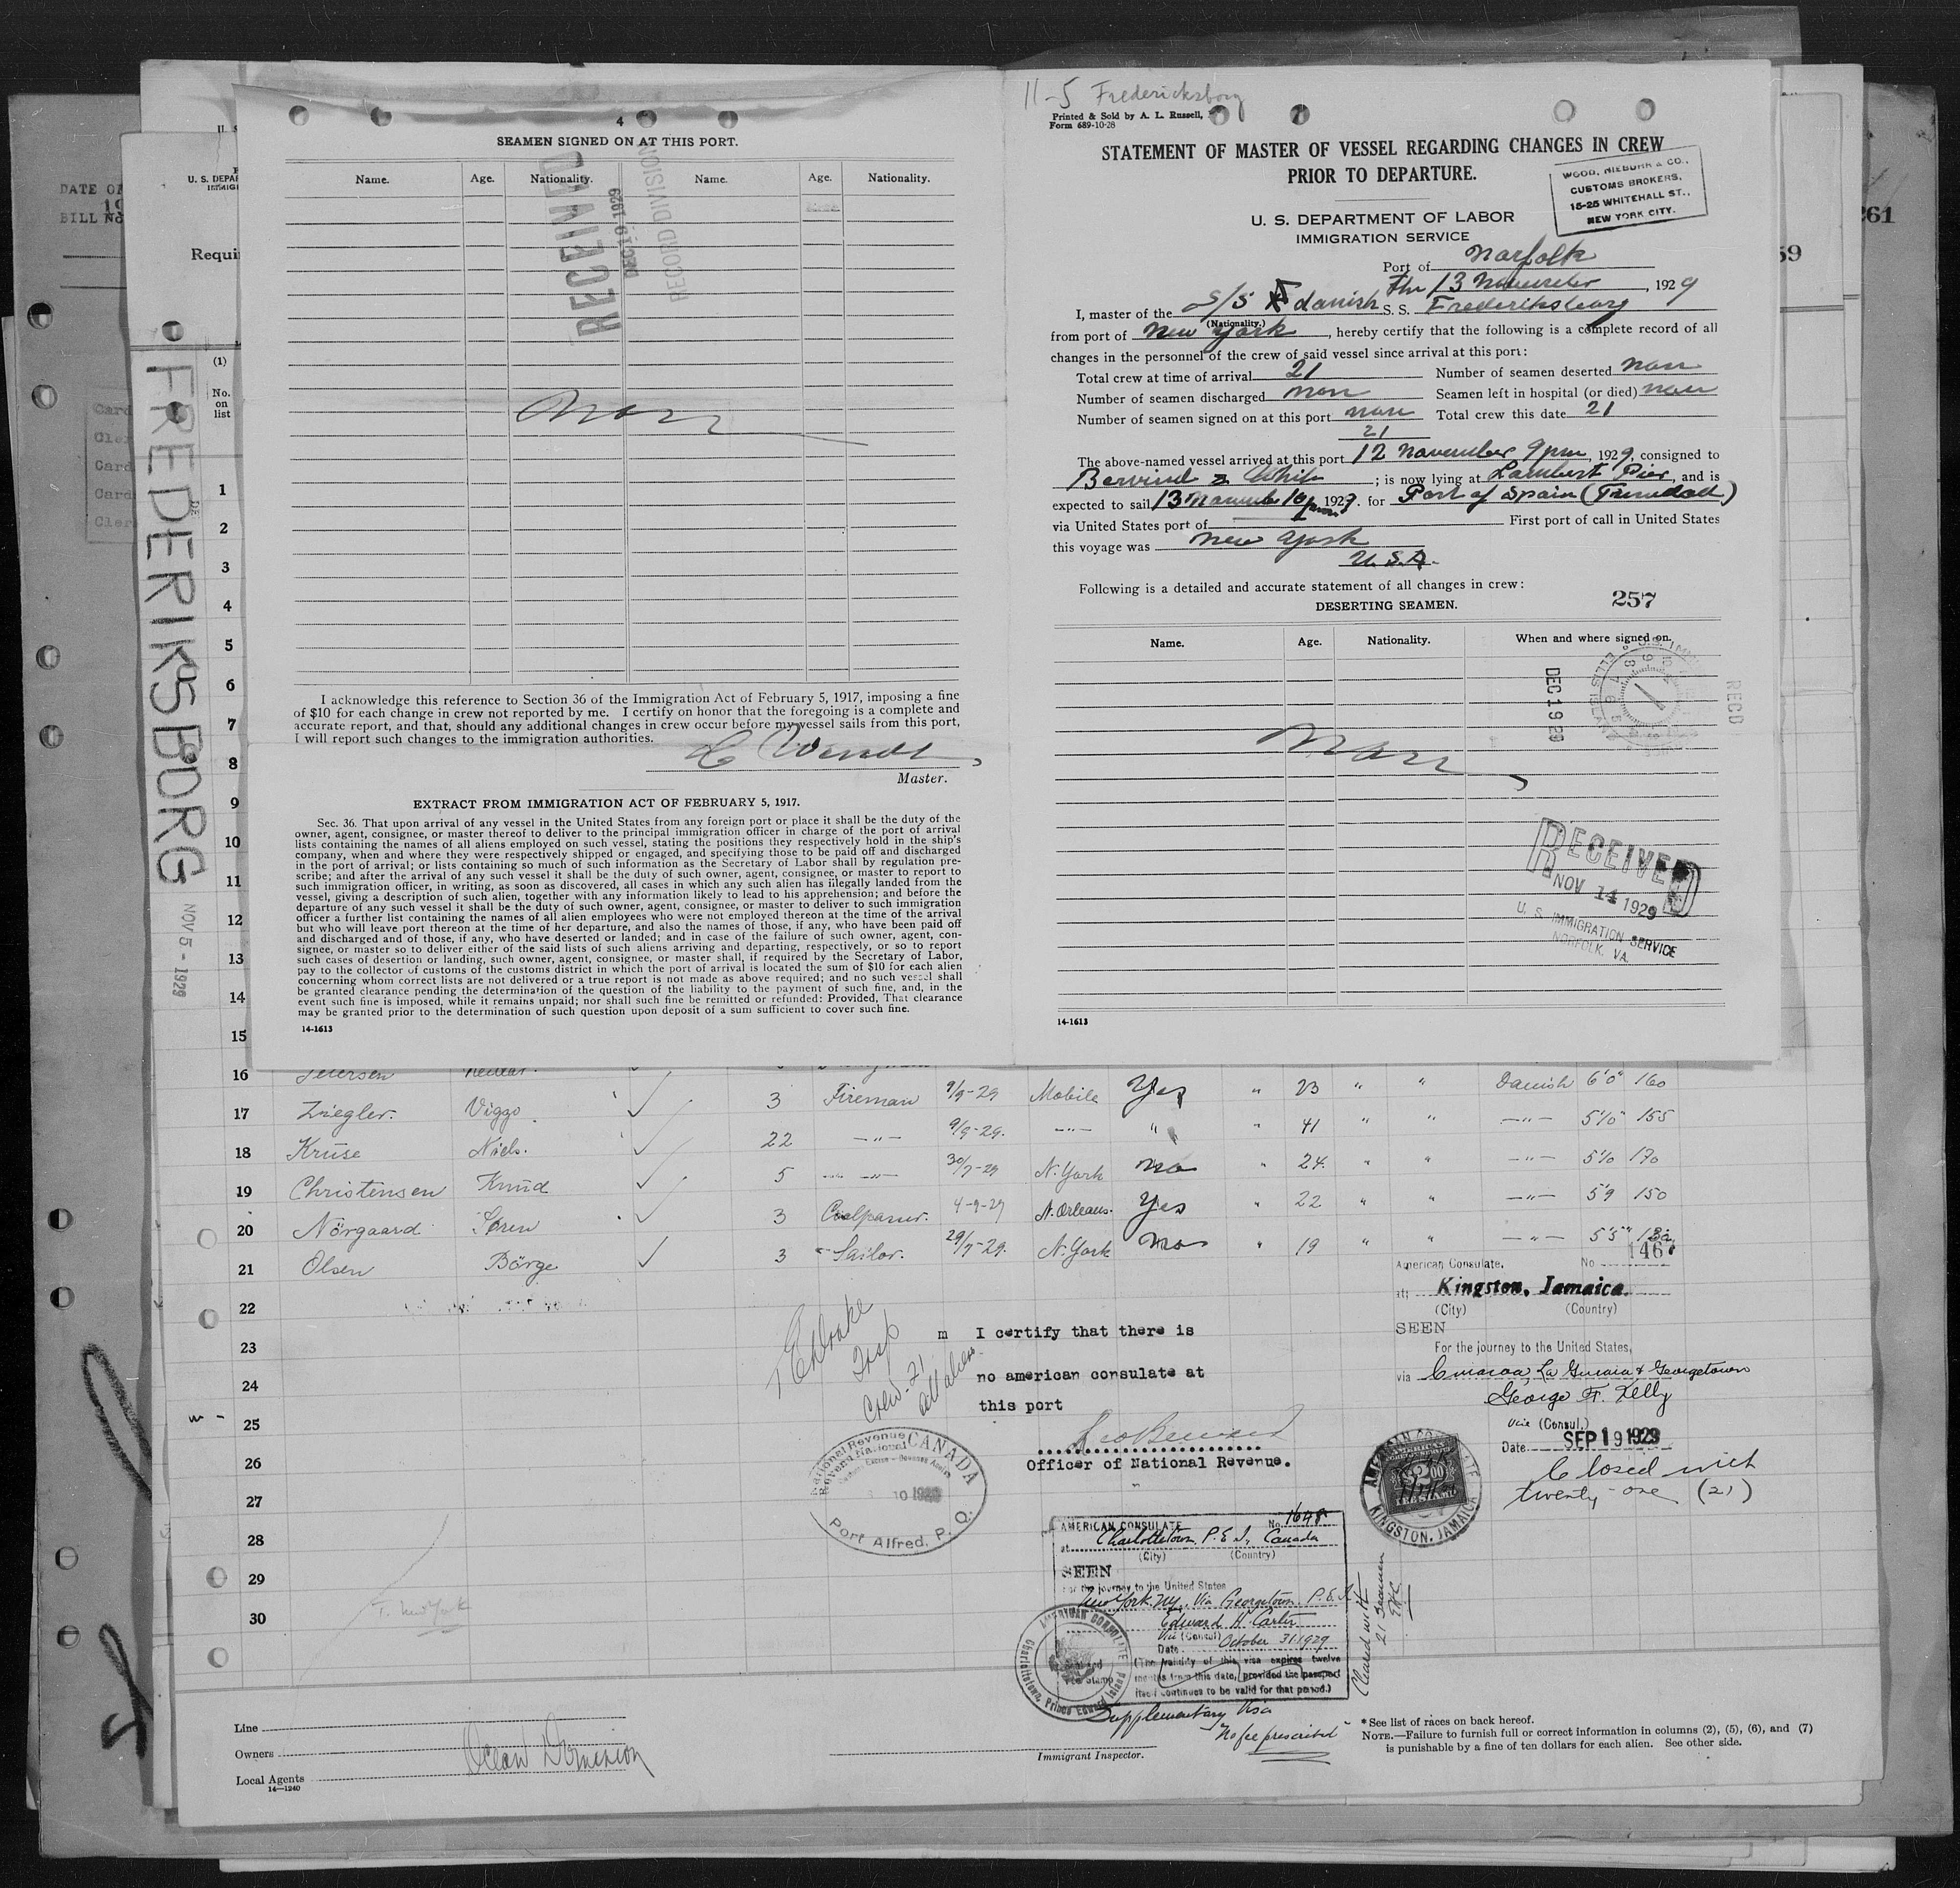 DATE OF
BILL No.
261
59
U. S. DEPAR
Requi
(1)
No.
on
list
FREDERIKSBORG
NOV 5 - 1929
4
SEAMEN SIGNED ON AT THIS PORT.
Name. Age. Nationality. Name. Age. Nationality.
RECEIVED
DEC 19 1929
RECORD DIVISION
I acknowledge this reference to Section 36 of the Immigration Act of February 5, 1917, imposing a fine
of $10 for each change in crew not reported by me. I certify on honor that the foregoing is a complete and
accurate report, and that, should any additional changes in crew occur before my vessel sails from this port,
I will report such changes to the immigration authorities.
Master.
EXTRACT FROM IMMIGRATION ACT OF FEBRUARY 5, 1917.
Sec. 36. That upon arrival of any vessel in the United States from any foreign port or place it shall be the duty of the
owner, agent, consignee, or master thereof to deliver to the principal immigration officer in charge of the port of arrival
lists containing the names of all aliens employed on such vessel, stating the positions they respectively hold in the ship's
company, when and where they were respectively shipped or engaged, and specifying those to be paid off and discharged
in the port of arrival; or lists containing so much of such information as the Secretary of Labor shall by regulation pre-
scribe; and after the arrival of any such vessel it shall be the duty of such owner, agent, consignee, or master to report to
such immigration officer, in writing, as soon as discovered, all cases in which any such alien has illegally landed from the
vessel, giving a description of such alien, together with any information likely to lead to his apprehension; and before the
departure of any such vessel it shall be the duty of such owner, agent, consignee, or master to deliver to such immigration
officer a further list containing the names of all alien employees who were not employed thereon at the time of the arrival
but who will leave port thereon at the time of her departure, and also the names of those, if any, who have been paid off
and discharged and of those, if any, who have deserted or landed; and in case of the failure of such owner, agent, con-
signee, or master so to deliver either of the said lists of such aliens arriving and departing, respectively, or so to report
such cases of desertion or landing, such owner, agent, consignee, or master shall, if required by the Secretary of Labor,
pay to the collector of customs of the customs district in which the port of arrival is located the sum of $10 for each alien
concerning whom correct lists are not delivered or a true report is not made as above required; and no such vessel shall
be granted clearance pending the determination of the question of the liability to the payment of such fine, and, in the
event such fine is imposed, while it remains unpaid; nor shall such fine be remitted or refunded: Provided, That clearance
may be granted prior to the determination of such question upon deposit of a sum sufficient to cover such fine.
14-1613
11-5 Fredericksborg
Printed & Sold by A. L. Russell,
Form 689-10-28
STATEMENT OF MASTER OF VESSEL REGARDING CHANGES IN CREW
PRIOR TO DEPARTURE.
WOOD, NIEBUHR & CO.,
CUSTOMS BROKERS,
15-25 WHITEHALL ST.,
NEW YORK CITY.
U. S. DEPARTMENT OF LABOR
IMMIGRATION SERVICE
Port of Norfolk
the 13 November, 1929
I, master of the S/S danish S. S. Frederiksborg
(Nationality.)
from port of New York, hereby certify that the following is a complete record of all
changes in the personnel of the crew of said vessel since arrival at this port:
Total crew at time of arrival 21 Number of seamen deserted
Number of seamen discharged Seamen left in hospital (or died)
Number of seamen signed on at this port Total crew this date 21
21
The above-named vessel arrived at this port 12 November 9 pm, 1929, consigned to
; is now lying at Lambert Pier, and is
expected to sail 13 November 10 pm 1929. for Port of Spain (Trinidad)
via United States port of First port of call in United States
this voyage was New York
U.S.A.
Following is a detailed and accurate statement of all changes in crew:
DESERTING SEAMEN.
257
Name. Age. Nationality. When and where signed on.
DEC 19 29
RECD
RECEIVED
NOV 14 1929
U. S. IMMIGRATION SERVICE
NORFOLK, VA.
14-1613
1
2
3
4
5
6
7
8
9
10
11
12
13
14
15
16 Petersen
17 Ziegler. Viggo 3 Fireman 9/9-29 Mobile Yes " 23 " " Danish 6'0" 160
18 Kruse Niels. 22 -"- 9/9-29. -"- " " 41 " " -"- 5'10" 155
19 Christensen Knud 5 -"- 30/7-29 N. York no " 24. " " -"- 5'10 170
20 Nörgaard Sören 3 Coalpasser. 4-9-29 N. Orleans. Yes " 22 " " -"- 5'9 150
21 Olsen Börge 3 Sailor. 29/7-29. N. York no " 19 " " -"- 5'5"
22
23
24
25
26
27
28
29
30
Crew-21
all aliens
I certify that there is
no american consulate at
this port
Officer of National Revenue.
National Revenue
Revenu National
CANADA
Port Alfred, P. Q.
American Consulate. No. 1467
at Kingston, Jamaica.
(City) (Country)
SEEN
For the journey to the United States,
via Curacoa, La Guaira & Georgetown
George F. Kelly
Vice (Consul.)
Date SEP 19 1929
Closed with
twenty-one (21)
AMERICAN CONSULATE
KINGSTON, JAMAICA
$2.00
FEE STAMP
AMERICAN CONSULATE No. 1648
at Charlottetown, P.E.I., Canada
(City) (Country)
SEEN
For the journey to the United States
New York, NY, Via Georgetown, P.E.I.
Edward H. Carter
Vice (Consul)
Date October 31 1929
(The validity of this visa expires twelve
months from this date, provided the passport
itself continues to be valid for that period.)
AMERICAN CONSULATE
Charlottetown, Prince Edward Island
Cleared with
21 Seamen
EHC
Supplementary Visa
"No fee prescribed"
T. New York
Line
Owners
Local Agents Ocean Dominion
14-1240
Immigrant Inspector.
* See list of races on back hereof.
NOTE.—Failure to furnish full or correct information in columns (2), (5), (6), and (7)
is punishable by a fine of ten dollars for each alien. See other side.